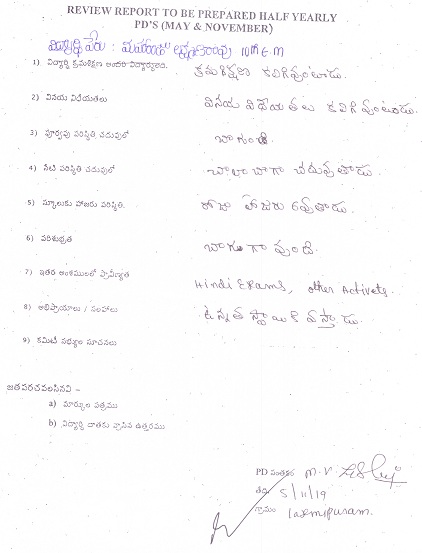 REVIEW REPORT TO BE PREPARED HALF YEARLY
PD'S (MAY & NOVEMBER)
విద్యార్థి పేరు : 10th E.M
1) విద్యార్థి క్రమశిక్షణ క్రమశిక్షణ కలిగివుంటాడు.
2) వినయ విధేయతలు వినయ విధేయతలు కలిగివుంటాడు.
3) పూర్వపు పరిస్థితి చదువులో బాగుంది.
4) నేటి పరిస్థితి చదువులో చాలా బాగా చదువుతాడు.
5) స్కూలుకు హాజరు పరిస్థితి. రోజూ హాజరు అవుతాడు.
6) పరిశుభ్రత బాగుగా వుంది.
7) ఇతర అంశములలో ప్రావీణ్యత Hindi Exams, other Activets.
8) అభిప్రాయాలు / సలహాలు ఉన్నత స్థాయికి వస్తాడు.
9) కమిటీ సభ్యుల సూచనలు
జతపరచవలసినవి –
a) మార్కుల పత్రము
b) విద్యార్థి దాతకు వ్రాసిన ఉత్తరము
PD సంతకం M.V
తేది 5/11/19
గ్రామం laxmipuram.